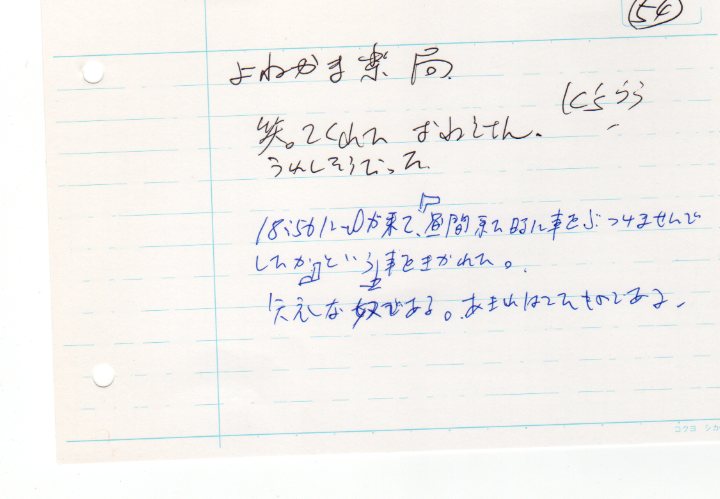 54
よねかま薬局
笑ってくれた おわらせん.
うれしそうだった
が来て、「昼間来た時に車をぶつけませんで
したか」という事をきかれた。
失礼な奴である。あきれはてたものである.
コクヨ シカ